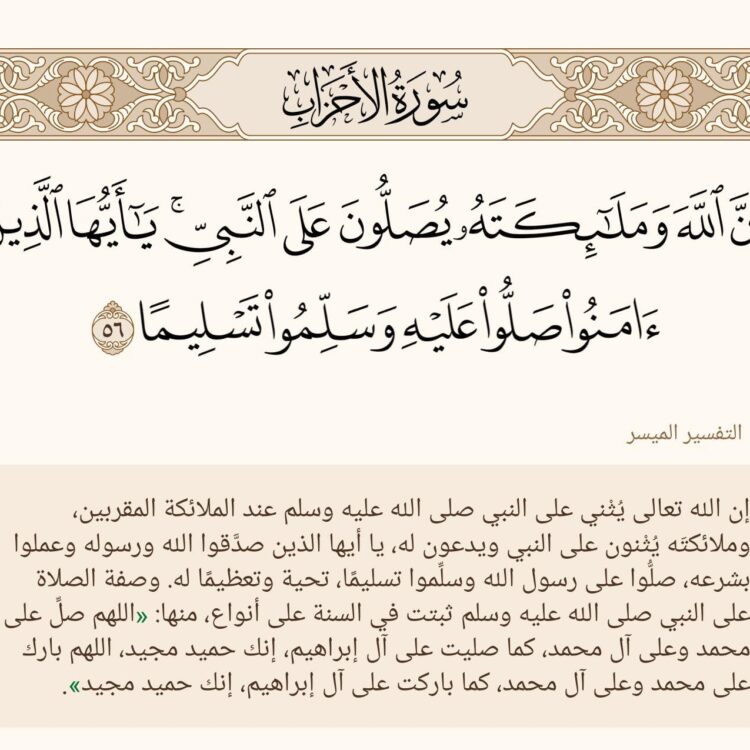 سُورَةُ الأَحْزَابِ
نَّ ٱللَّهَ وَمَلَٰٓئِكَتَهُۥ يُصَلُّونَ عَلَى ٱلنَّبِيِّۚ يَٰٓأَيُّهَا ٱلَّذِينَ
ءَامَنُواْ صَلُّواْ عَلَيْهِ وَسَلِّمُواْ تَسْلِيمًا ٥٦
التفسير الميسر
إن الله تعالى يُثْني على النبي صلى الله عليه وسلم عند الملائكة المقربين،
وملائكتَه يُثْنون على النبي ويدعون له، يا أيها الذين صدَّقوا الله ورسوله وعملوا
بشرعه، صلُّوا على رسول الله وسلِّموا تسليمًا، تحية وتعظيمًا له. وصفة الصلاة
على النبي صلى الله عليه وسلم ثبتت في السنة على أنواع، منها: «اللهم صلِّ على
محمد وعلى آل محمد، كما صليت على آل إبراهيم، إنك حميد مجيد، اللهم بارك
على محمد وعلى آل محمد، كما باركت على آل إبراهيم، إنك حميد مجيد».